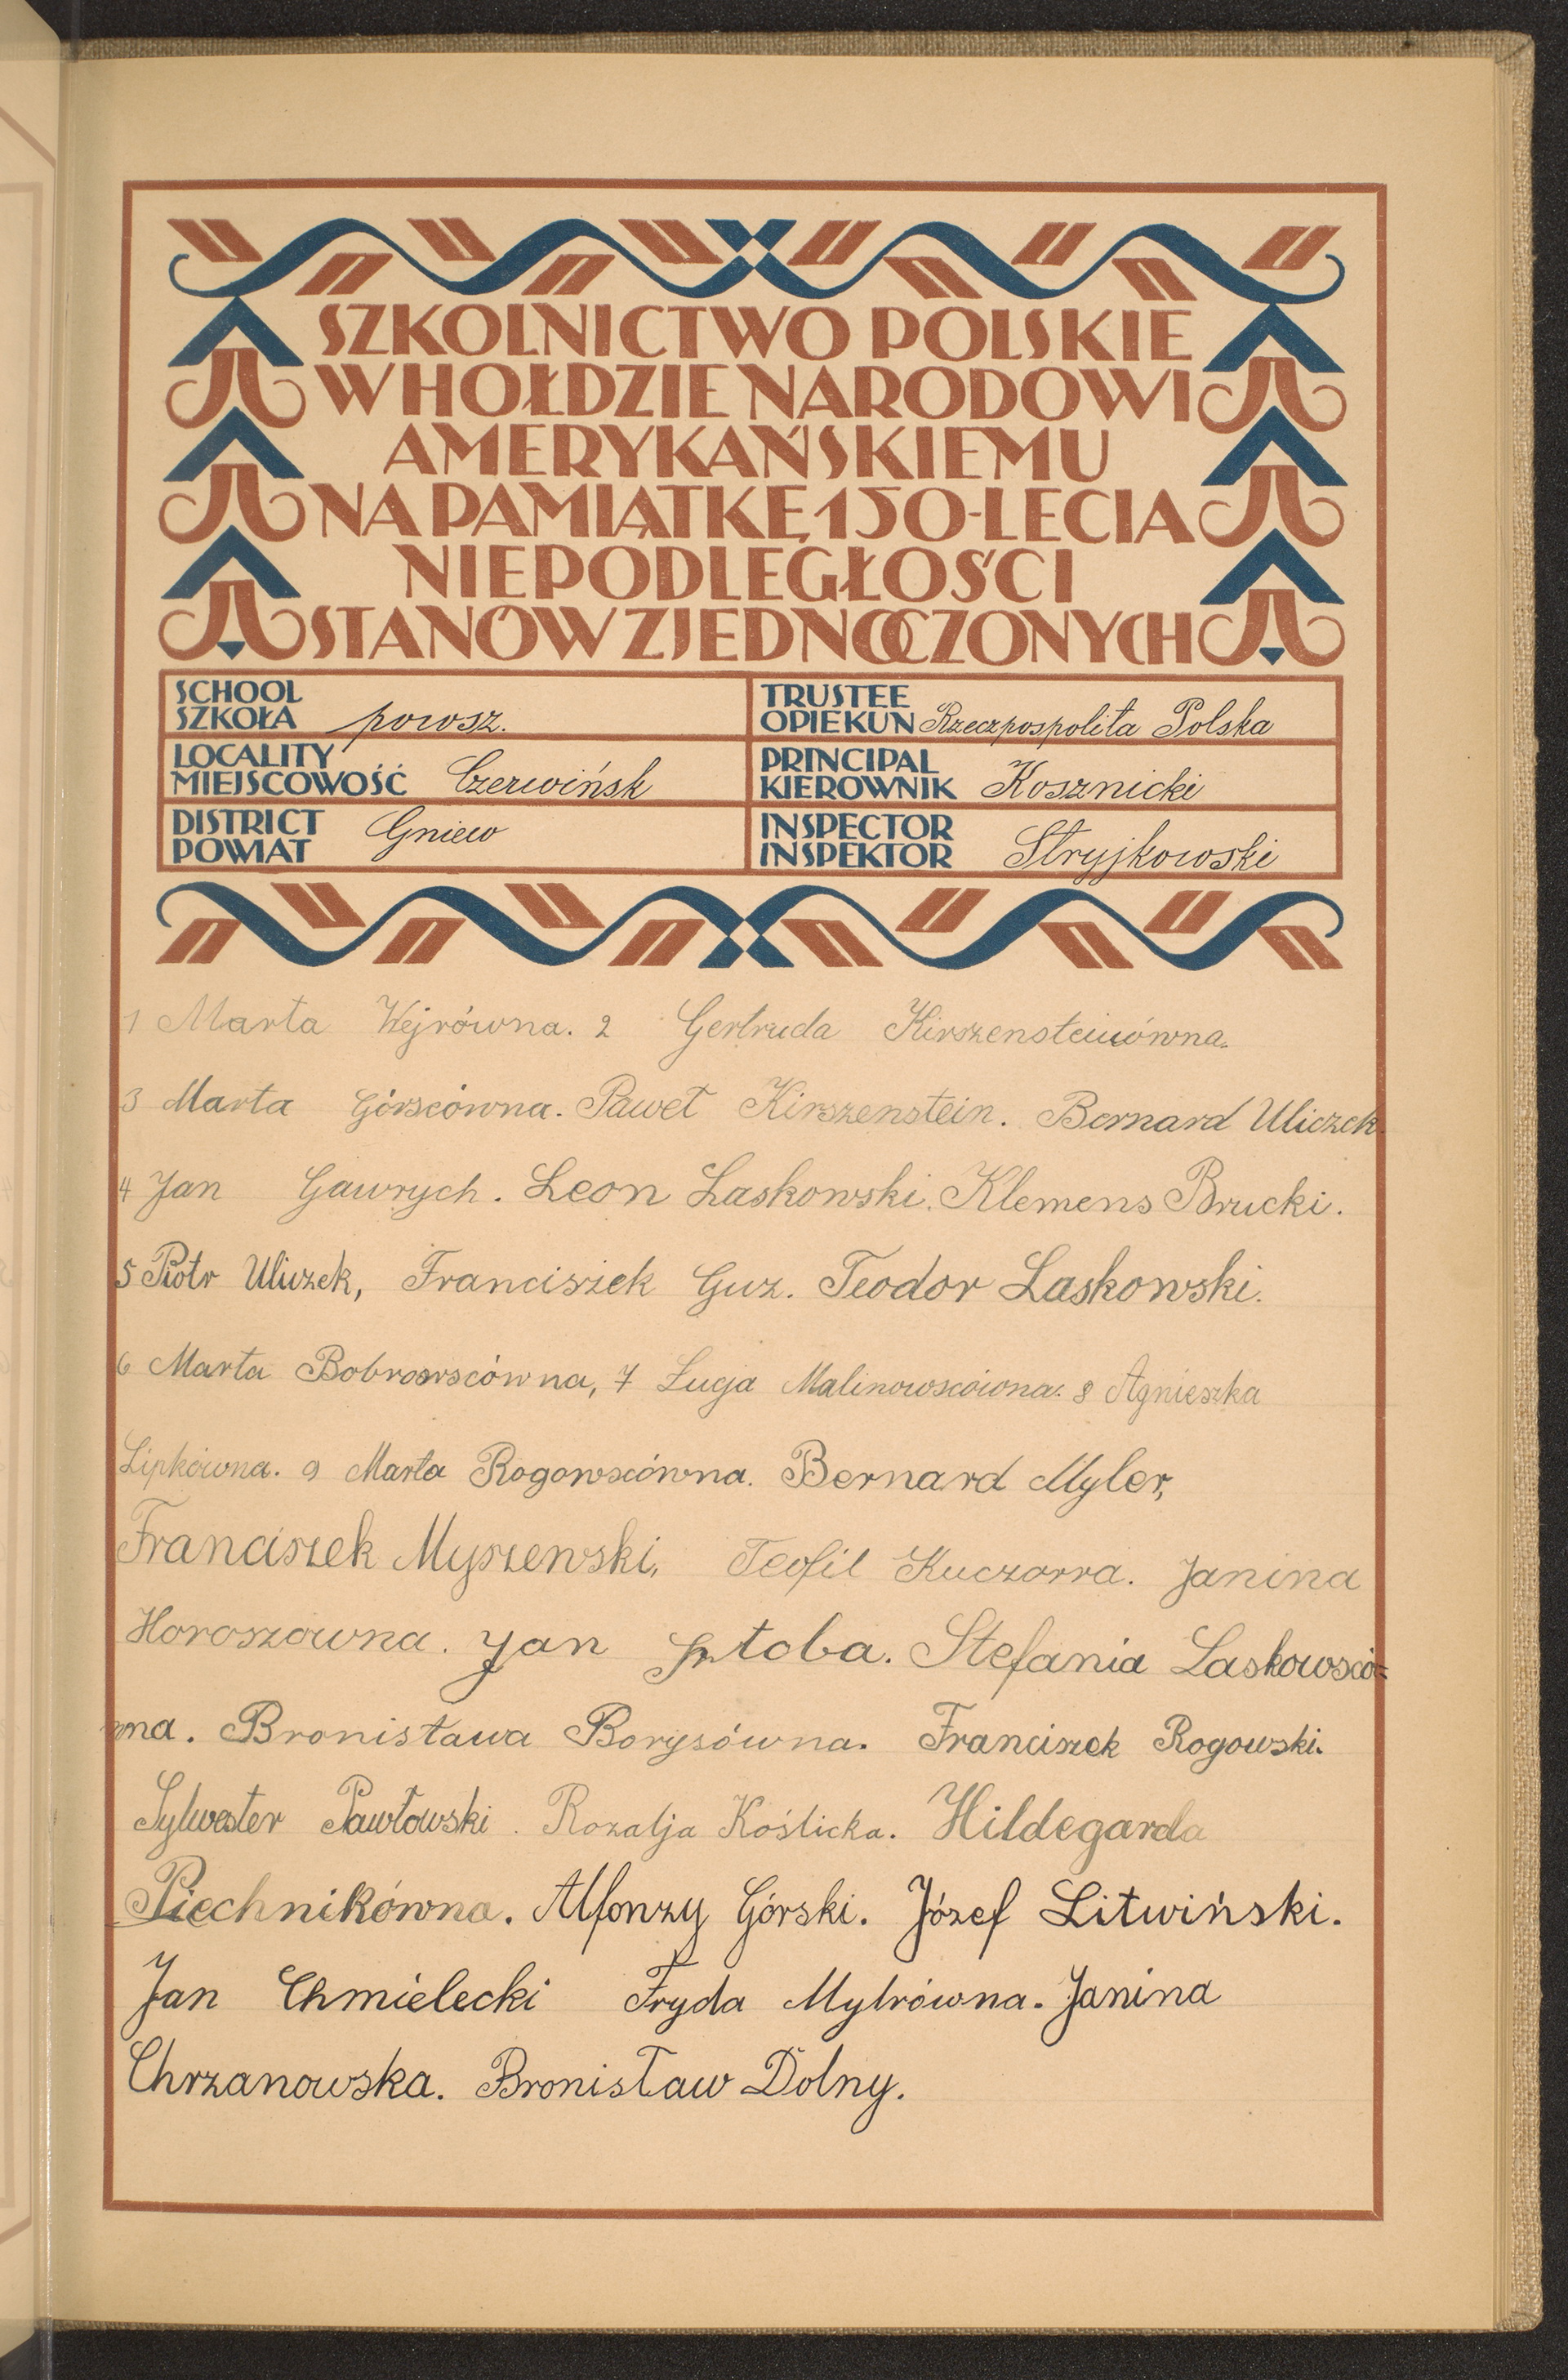 SZKOLNICTWO POLSKIE
W HOŁDZIE NARODOWI
AMERYKAŃSKIEMU
NA PAMIĄTKĘ 150-LECIA
NIEPODLEGŁOŚCI
STANÓW ZJEDNOCZONYCH
SCHOOL
SZKOŁA powsz.
TRUSTEE
OPIEKUN Rzeczpospolita Polska
LOCALITY
MIEJSCOWOŚĆ Czerwińsk
PRINCIPAL
KIEROWNIK Kosznicki
DISTRICT
POWIAT Gniew
INSPECTOR
INSPEKTOR Stryjkowski
1 Marta Wejrówna. 2 Gertruda Kirszensteinówna.
3 Marta Górscówna. Paweł Kirszenstein. Bernard Uliczek
4 Jan Gawrych. Leon Laskowski. Klemens Brucki.
5 Piotr Uliczek, Franciszek Guz. Teodor Laskowski.
6 Marta Bobrowscówna, 7 Łucja Malinowscówna. 8 Agnieszka
Lipkówna. 9 Marta Rogowscówna. Bernard Myler,
Franciszek Myszewski, Teofil Kuczorra. Janina
Horoszowna. Jan Stefania Laskowscó=
wna. Bronisława Borysówna. Franciszek Rogowski.
Sylwester Pawłowski. Rozalja Koślicka. Hildegarda
Piechnikówna. Alfonzy Górski. Józef Litwiński.
Jan Chmielecki Fryda Mylrówna. Janina
Chrzanowska. Bronisław Dolny.